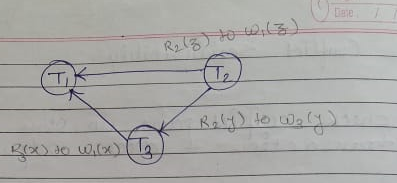 Date: / /
R₂(z) to W₁(z)
T₁
T₂
R₂(y) to W₃(y)
R₃(x) to W₁(x)
T₃